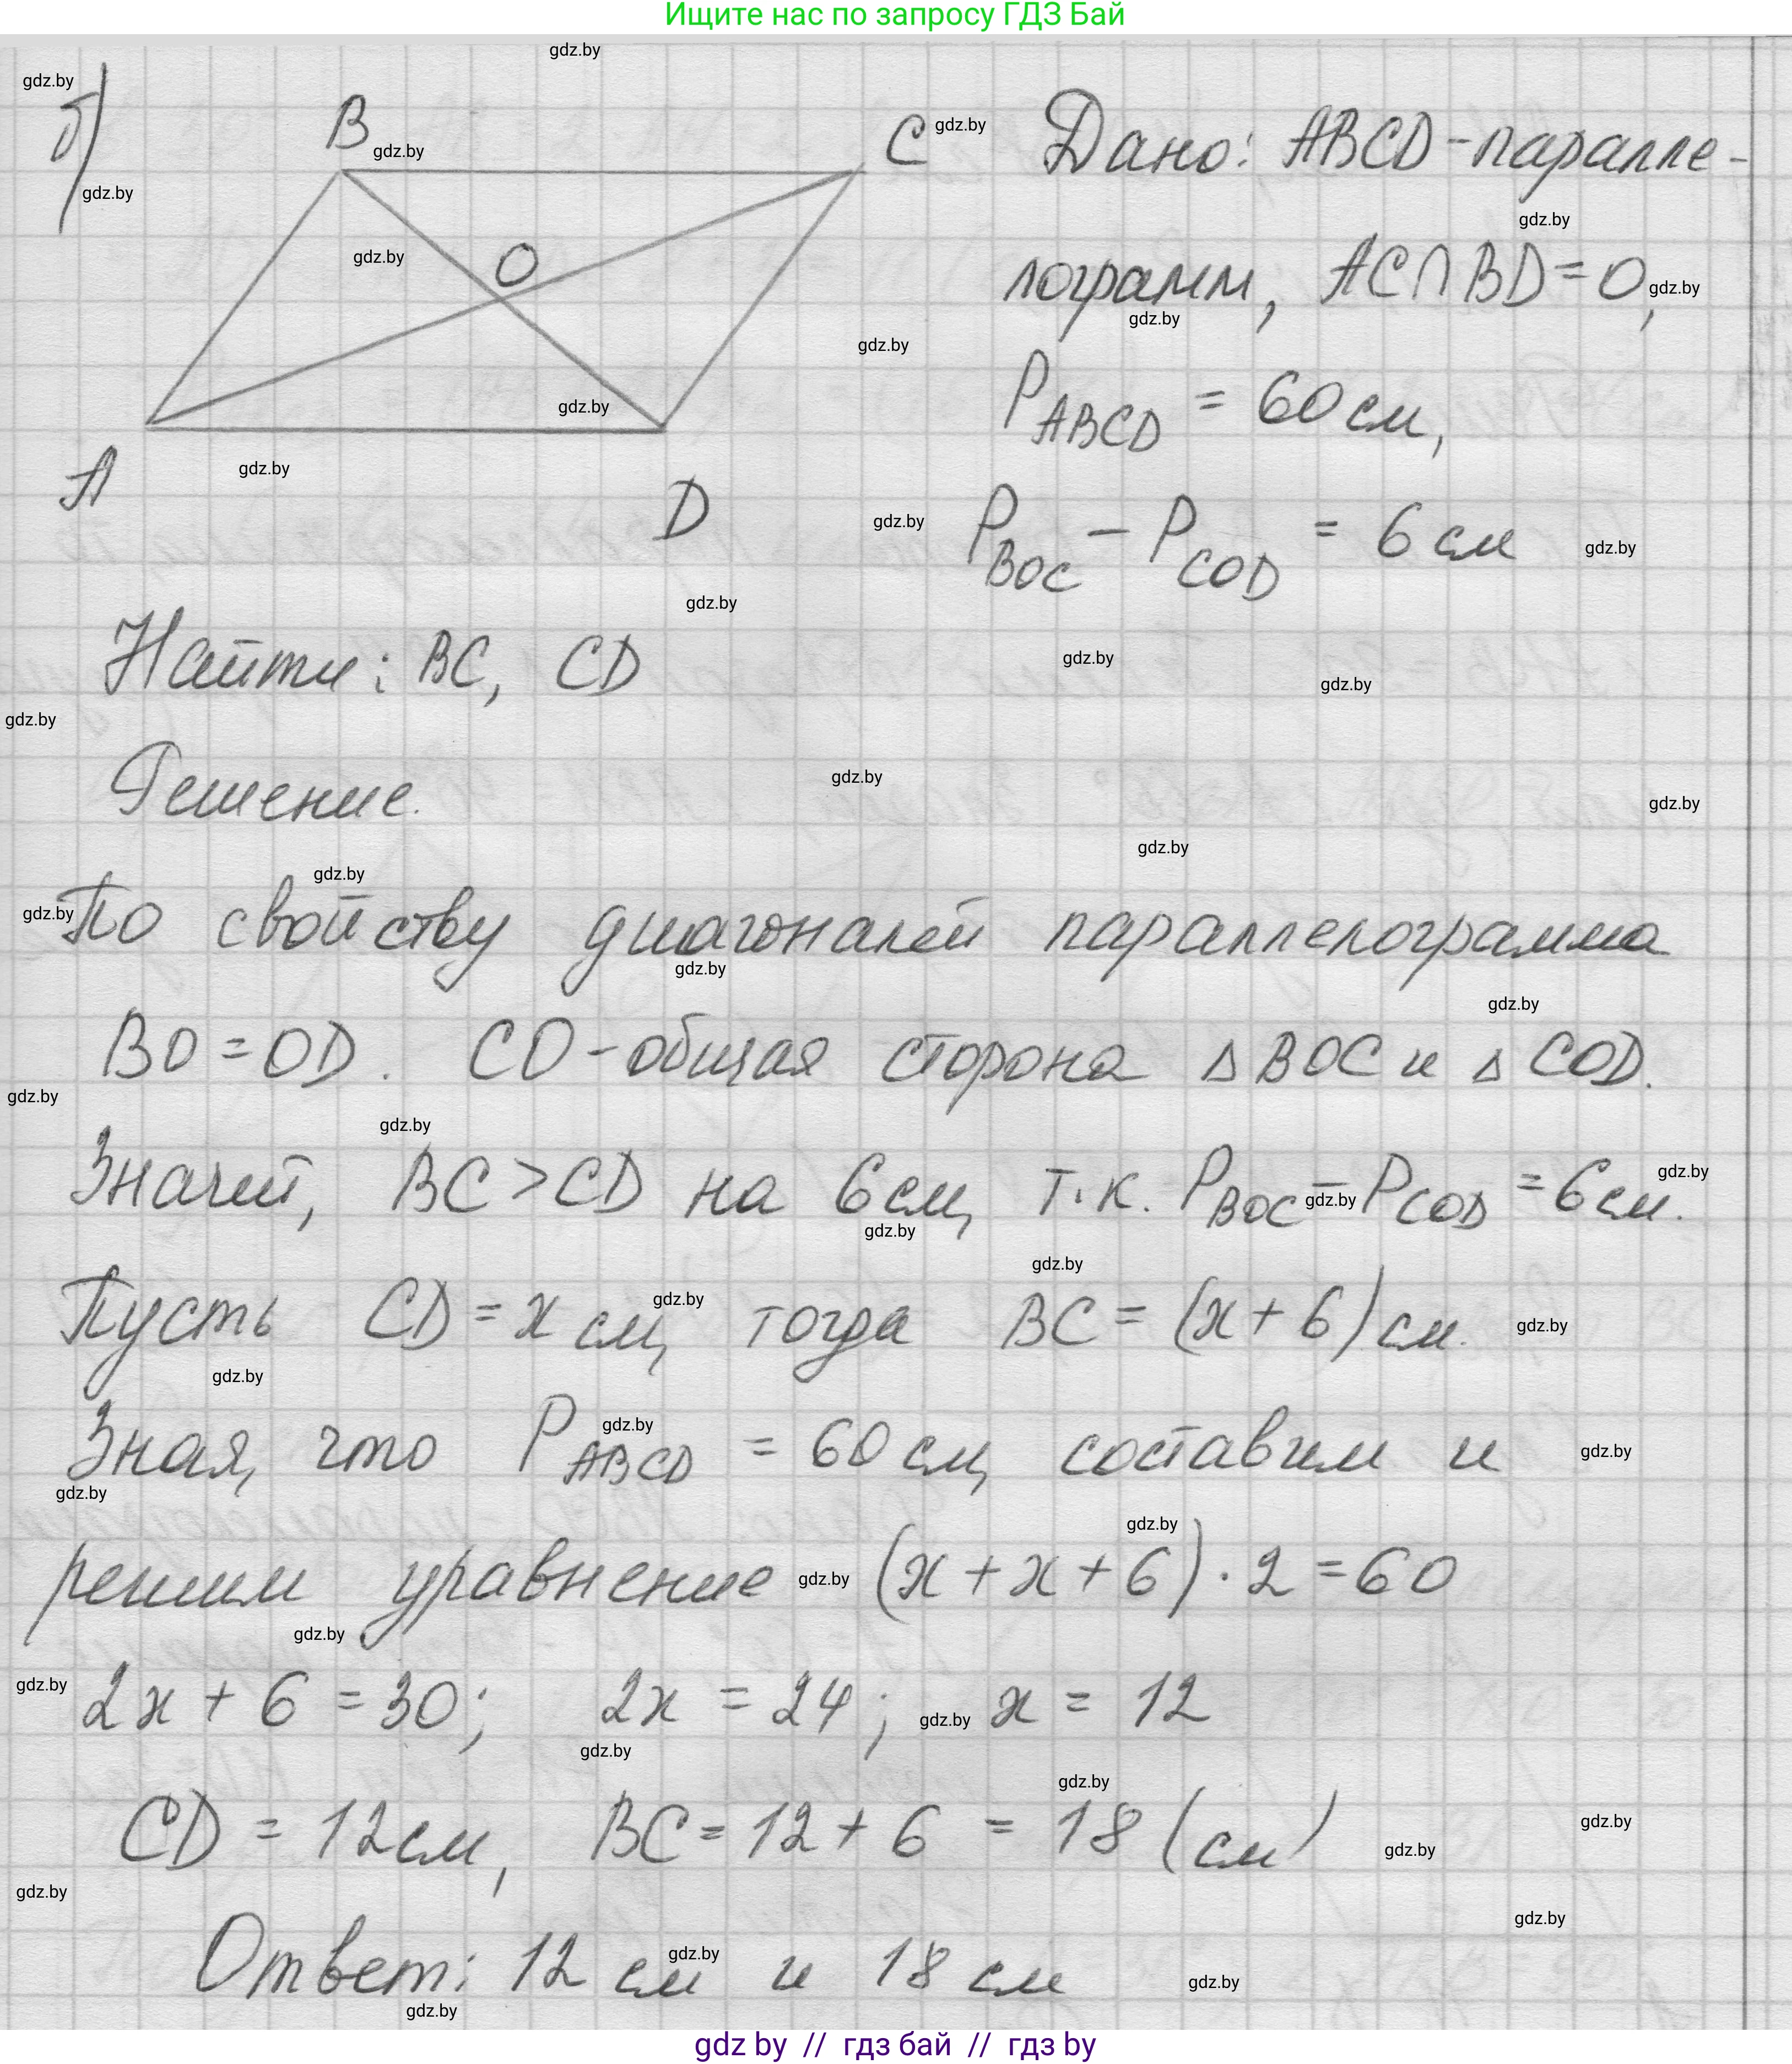 Ищите нас по запросу ГДЗ Бай
б)
B
C
O
A
D
Дано: ABCD - паралле-
лограмм, AC∩BD = O,
P_ABCD = 60 см,
P_BOC − P_COD = 6 см
Найти: BC, CD
Решение.
По свойству диагоналей параллелограмма
BO = OD. CO - общая сторона △ BOC и △ COD.
Значит, BC > CD на 6 см, т.к. P_BOC − P_COD = 6 см.
Пусть CD = x см, тогда BC = (x + 6) см.
Зная, что P_ABCD = 60 см, составим и
решим уравнение (x + x + 6) · 2 = 60
2x + 6 = 30; 2x = 24; x = 12
CD = 12 см, BC = 12 + 6 = 18 (см)
Ответ: 12 см и 18 см
gdz by // гдз бай // гдз by